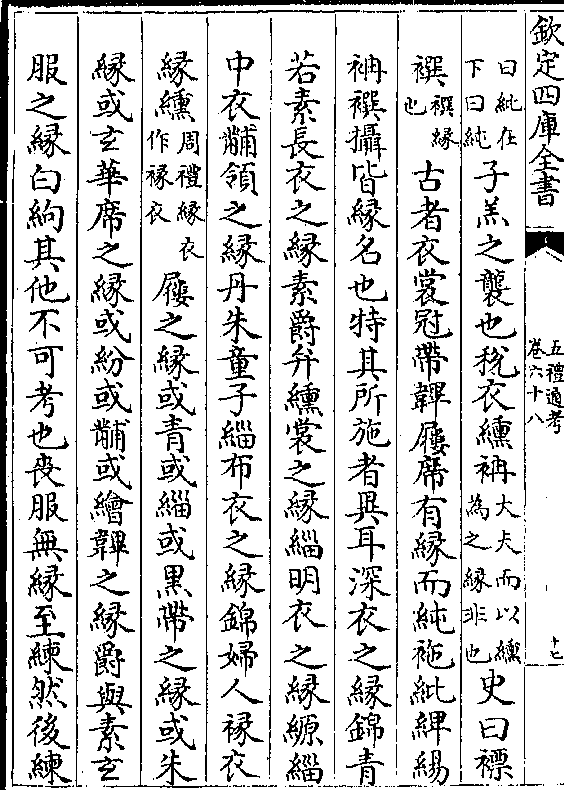 欽定四庫全書
五禮通考
卷六十八
十七
曰紕在
下曰純
子羔之襲也稅衣纁袡
大夫而以纁
為之緣非也
史曰褾
襈
襈緣
也
古者衣裳冠帶韠屨席有緣而純袘紕綼緆
袡襈攝皆緣名也特其所施者異耳深衣之緣錦青
若素長衣之緣素爵弁纁裳之緣緇明衣之緣縓緇
中衣黼領之緣丹朱童子緇布衣之緣錦婦人褖衣
緣纁
周禮緣衣
作褖衣
屨之緣或青或緇或黒帶之緣或朱
緣或玄華席之緣或紛或黼或繪韠之緣爵與素玄
服之緣白絇其他不可考也喪服無緣至練然後練